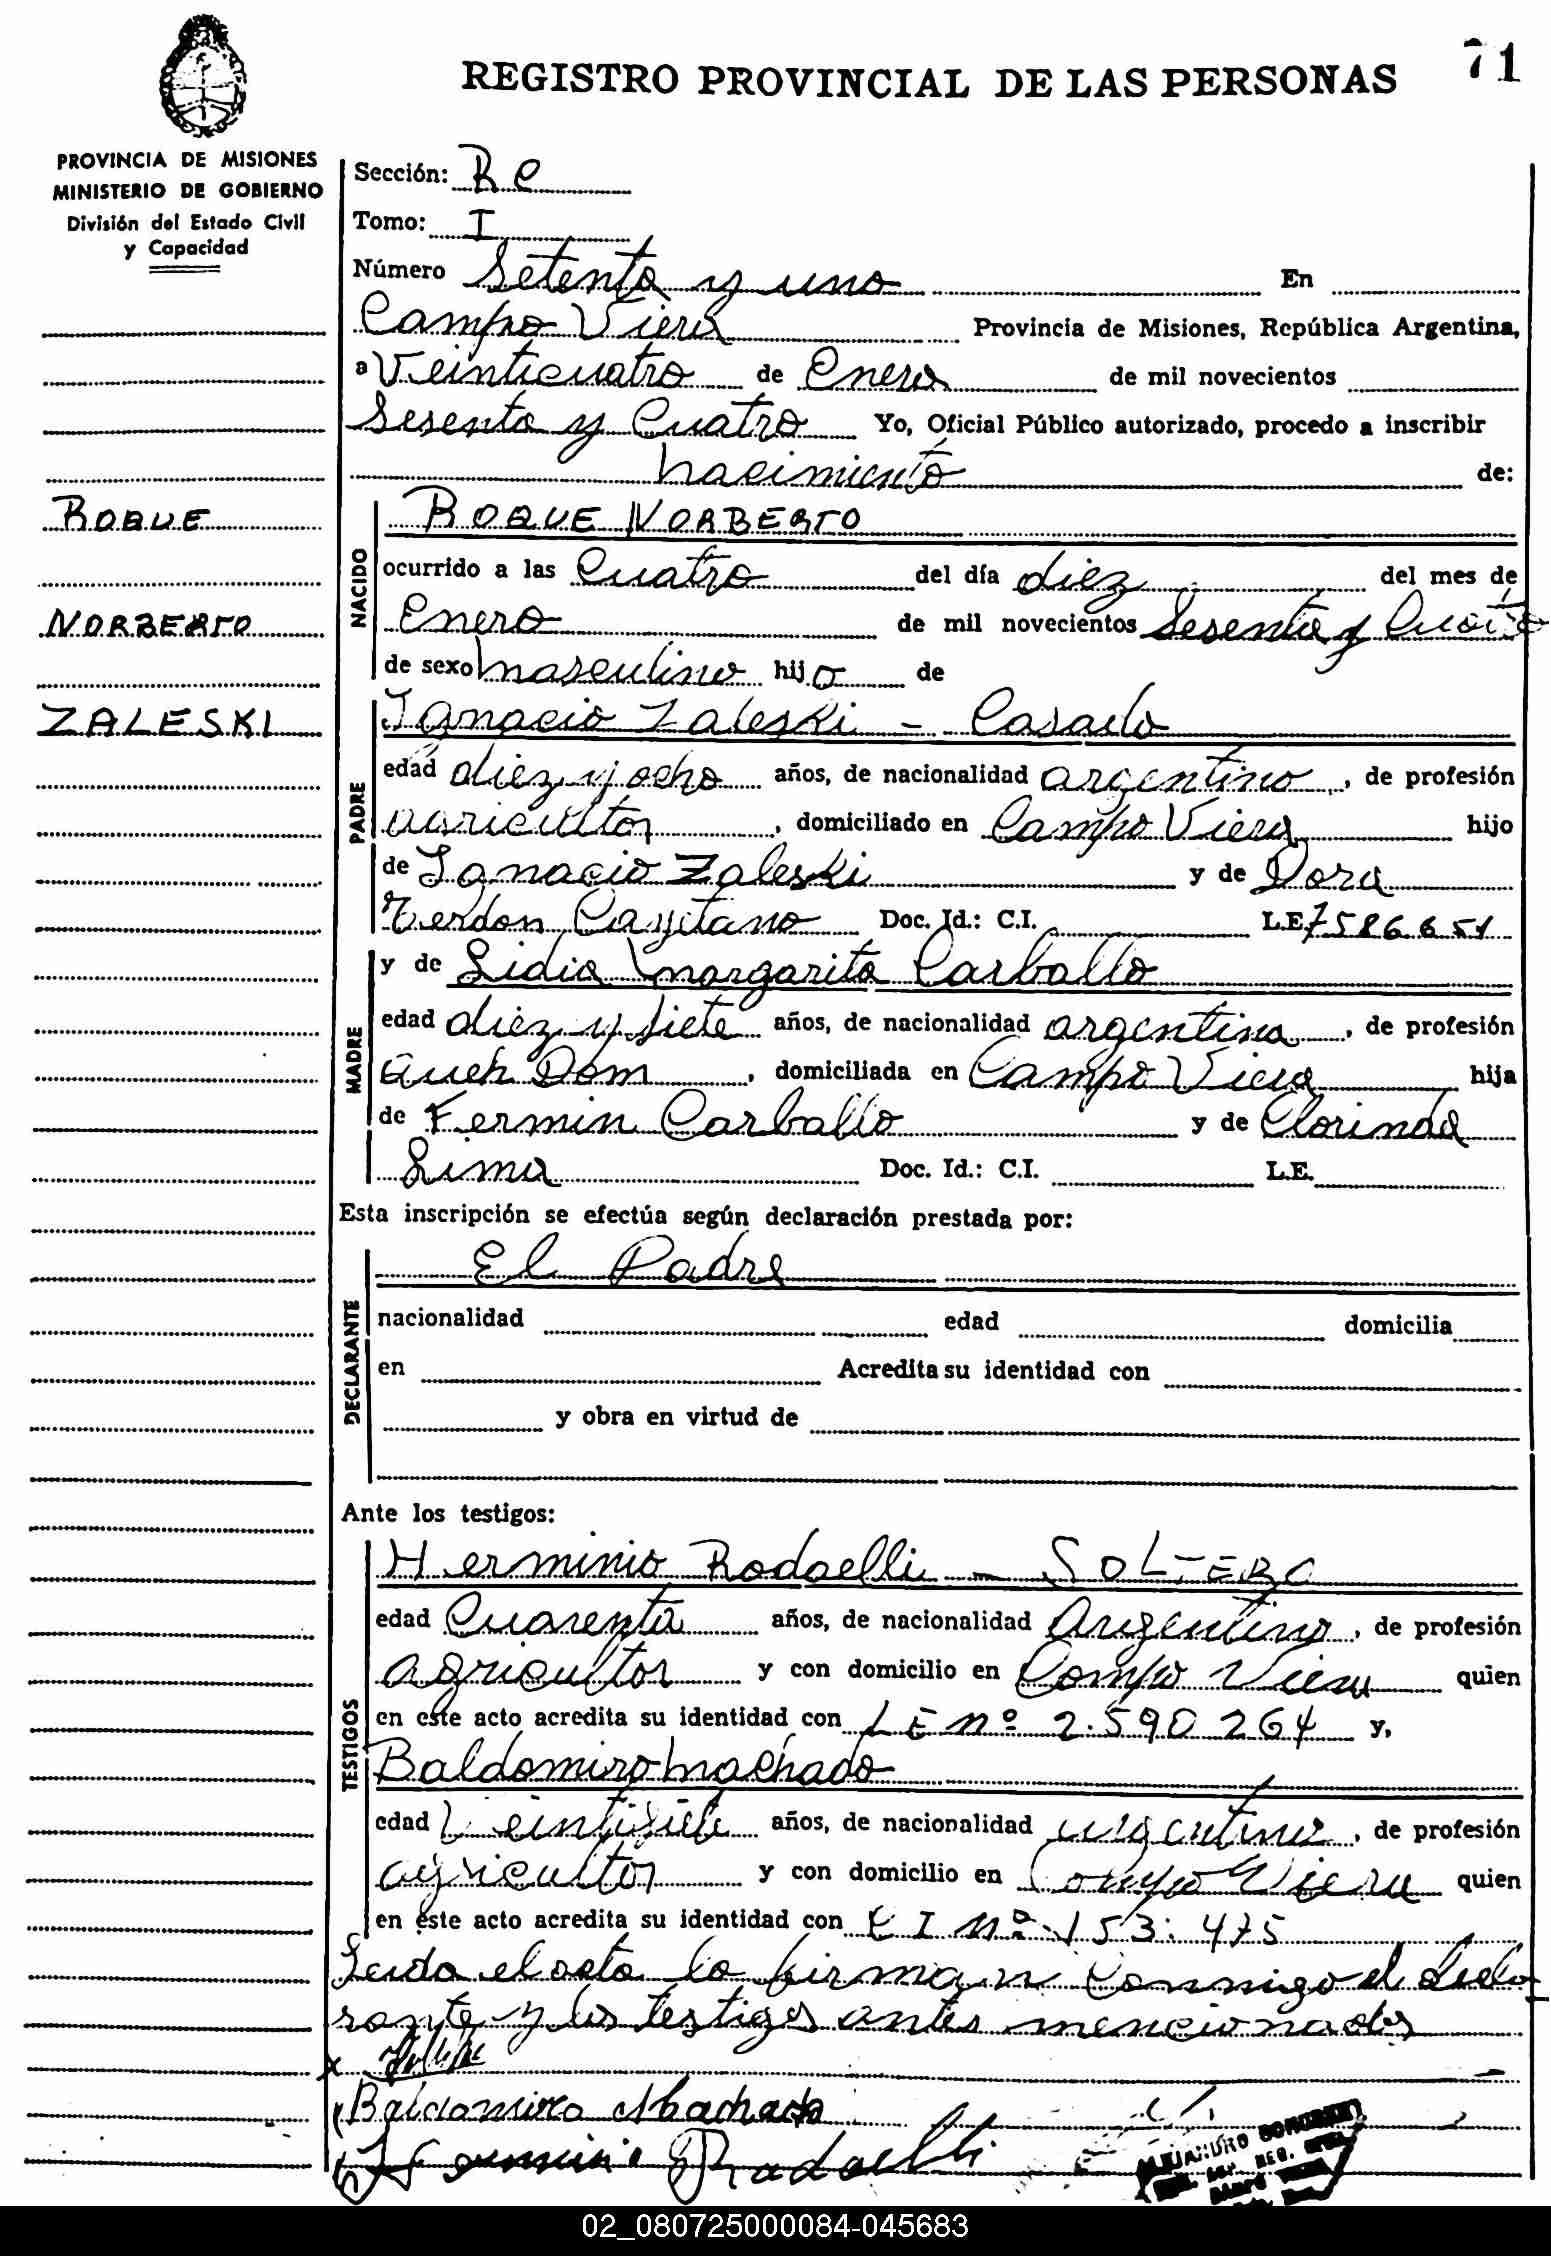 71
REGISTRO PROVINCIAL DE LAS PERSONAS
PROVINCIA DE MISIONES
MINISTERIO DE GOBIERNO
División del Estado Civil
y Capacidad
Sección: Re
Tomo: I
Número Setenta y uno En
Campo Viera Provincia de Misiones, República Argentina,
a Veinticuatro de Enero de mil novecientos
Sesenta y Cuatro Yo, Oficial Público autorizado, procedo a inscribir
nacimiento de:
ROQUE
NORBERTO
ZALESKI
NACIDO
ROQUE NORBERTO
ocurrido a las Cuatro del día diez del mes de
Enero de mil novecientos Sesenta y Cuatro
de sexo masculino hijo de
PADRE
Ignacio Zaleski - Casado
edad diez y ocho años, de nacionalidad argentino, de profesión
agricultor, domiciliado en Campo Viera hijo
de Ignacio Zaleski y de Dora
Cayetano Doc. Id.: C.I. L.E. 7586651
MADRE
y de Lidia Margarita Carballo
edad diez y siete años, de nacionalidad argentina, de profesión
Queh Dom, domiciliada en Campo Viera hija
de Fermin Carballo y de Clorinda
Lima Doc. Id.: C.I. L.E.
Esta inscripción se efectúa según declaración prestada por:
DECLARANTE
El Padre
nacionalidad edad domicilia
en Acredita su identidad con
y obra en virtud de
Ante los testigos:
TESTIGOS
Herminio Rodaelli - SOLTERO
edad Cuarenta años, de nacionalidad Argentino, de profesión
agricultor y con domicilio en Campo Viera quien
en este acto acredita su identidad con LE nº 2.590264 y,
Baldomiro Machado
edad Veintisiete años, de nacionalidad argentino, de profesión
agricultor y con domicilio en Campo Viera quien
en este acto acredita su identidad con CI nº 153.475
Leida el acta la firman conmigo el decla
rante y los testigos antes mencionados
x
Baldomiro Machado
Herminio Rodaelli
02_080725000084-045683